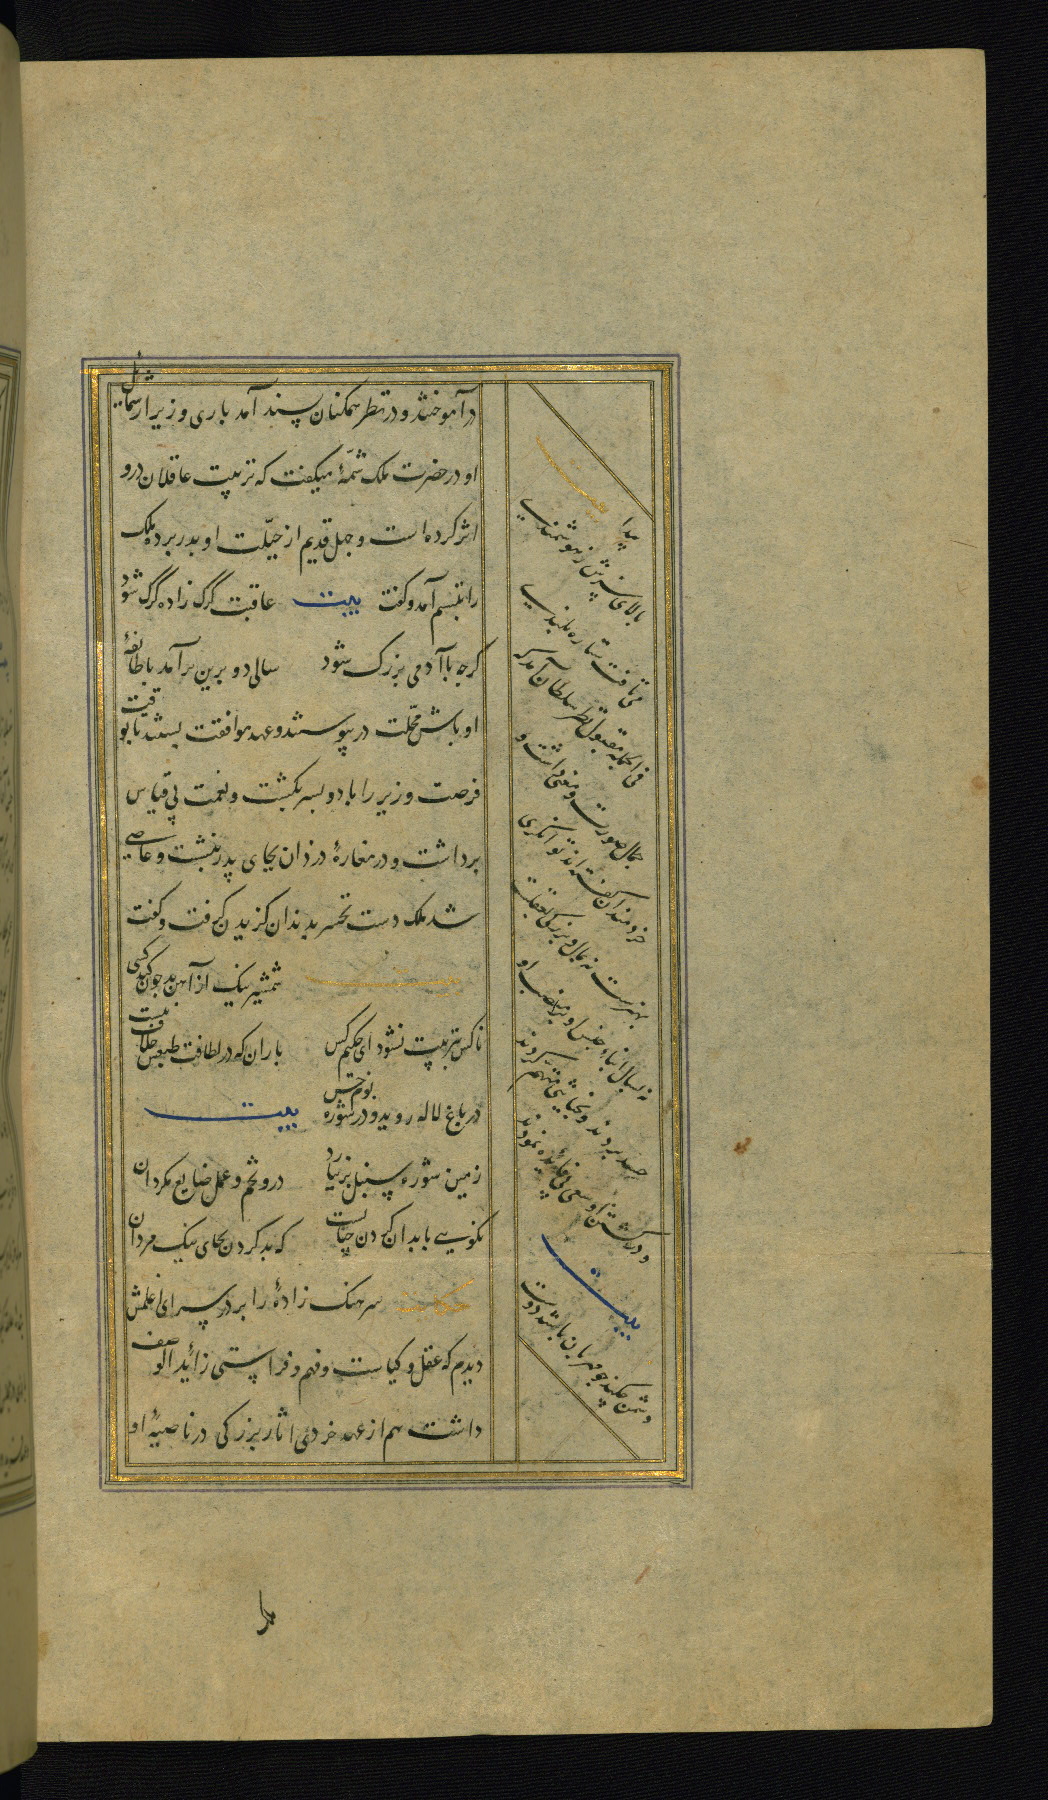 در آموختند و در نظر همکنان پسند آمد باری وزیر از شمایل
او در حضرت ملک شمّهٔ میگفت که تربیت عاقلان درو
اثر کرده است و جهل قدیم از جبلّت او بدر برده ملک
را تبسم آمد و گفت بیت عاقبت گرگ زاده گرگ شود
گرچه با آدمی بزرگ شود سالی دو برین برآمد با طائفهٔ
اوباش محلّت در پیوستند و عهد موافقت بستند تا بوقت
فرصت وزیر را با دو پسر بکشت و نعمت بی قیاس
برداشت و در مغارهٔ دزدان بجای پدر بنشست و عاصی
شد ملک دست تحسر بدندان گزیدن گرفت و گفت
شمشیر نیک از آهن بد چون کند کسی
ناکس بتربیت نشود ای حکیم کس باران که در لطافت طبعش خلاف نیست
در باغ لاله روید و در شوره بوم خس بیت
زمین شوره سنبل بر نیارد درو تخم و عمل ضایع مگردان
نکویی با بدان کردن چنانست که بد کردن بجای نیک مردان
حکایت سرهنگ زادهٔ را بر در سرای اغلمش
دیدم که عقل و کیاست و فهم و فراستی زائد الوصف
داشت هم از عهد خردی اثار بزرگی در ناصیهٔ او
پیدا
بالای سرش ز هوشمندی
می تافت ستاره بلندی
فی الجمله مقبول نظر سلطان آمد که
جمال صورت و معنی داشت و
خردمندان گفته اند توانگری
بهنرست نه بمال و بزرگی بعقلست
نه بسال ابناء جنس او بر منصب او
حسد بردند و بخیانتی متهم کردند
و در کشتن او سعی بی فائده نمودند
بیت
دشمن چکند چو مهربان باشد دوست